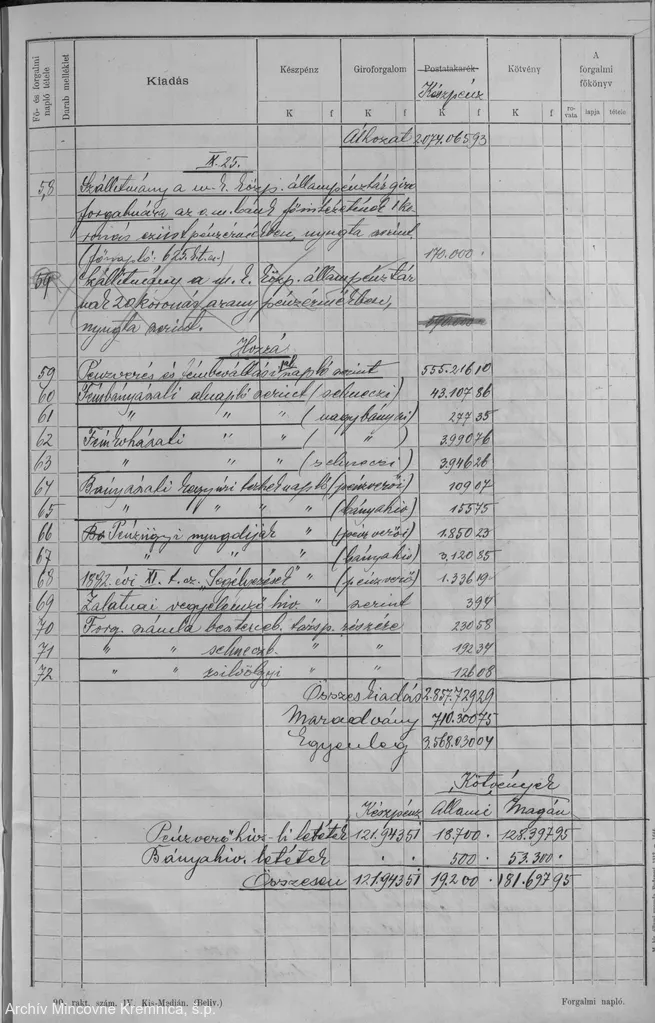 Fő- és forgalmi napló tétele
Darab melléklet
Kiadás
Készpénz
Giroforgalom
Postatakarék
Készpénz
Kötvény
A forgalmi főkönyv
K f K f K f K f
rovata lapja tétele
Áthozat 2074.065 93
XI. 25.
58 Szállitmány a m. k. közp. állampénztár giro
forgalmára az o. m. bank főintézeténél 1 ko
ronás ezüst pénzérmékben, nyugta szerint
170.000 ·
59 Szállitmány a m. k. közp. állampénztár
nak 20 koronás arany pénzérmékben,
nyugta szerint.
Hozzá
59 Pénzverés és fémbeváltási napló szerint 555.216 10
60 Fémbányászati alnapló szerint (selmeczi) 43.107 86
61 " " " (nagybányai) 277 35
62 Fémkohászati " " ( " ) 3.990 76
63 " " " (selmeczi) 3.946 26
64 Bányászati kegyúri terhek napló (pénzverői) 109 07
65 " " " " (bányahiv) 155 75
66 Pénzügyi nyugdijak " (pénzverői) 1.850 23
67 " " " (bányahiv) 3.120 85
68 1892. évi XI. t. cz. „Segélyezések" " (pénzverő) 1.336 19
69 Zalatnai vegyelemző hiv. " szerint 3 94
70 Forg. számla beszterceb. társp. részére 230 58
71 " " selmecz " " 192 34
72 " " zsilvölgyi " " 126 08
Összes kiadás 2.857.729 29
Maradvány 710.300 75
Egyenleg 3.568.030 04
Kötvények
Készpénz Állami Magán
Pénzverő hiv-li letétek 121.943 51 18.700 · 128.397 95
Bányahiv. letétek · · 500 · 53.300 ·
Összesen 121.943 51 19.200 · 181.697 95
90. rakt. szám. IV. Kis-Medián. (Beliv.)
Forgalmi napló.
Archív Mincovne Kremnica, š.p.